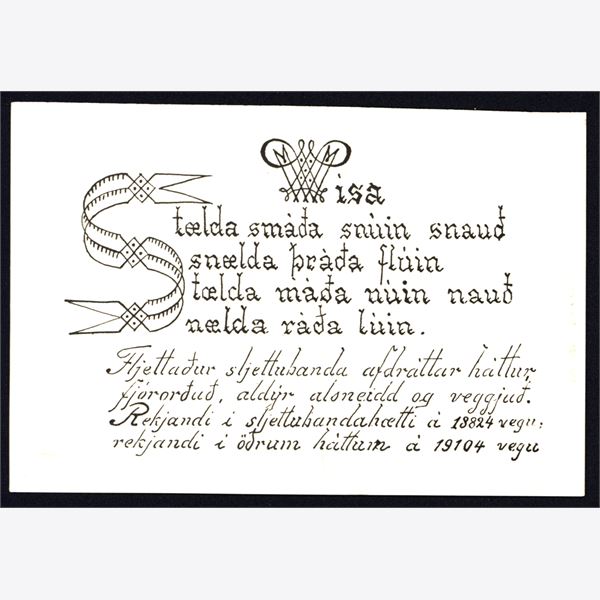 Wisa
Stælda smáða snúin snauð
snælda þráða flúin
tælda máða núin nauð
nælda ráða lúin.
Fljettaður sljettubanda afdráttar háttur,
fjórorðuð, aldýr alsneidd og veggjuð.
Rekjandi í sljettubandahætti á 18824 vegu;
rekjandi í öðrum háttum á 19104 vegu